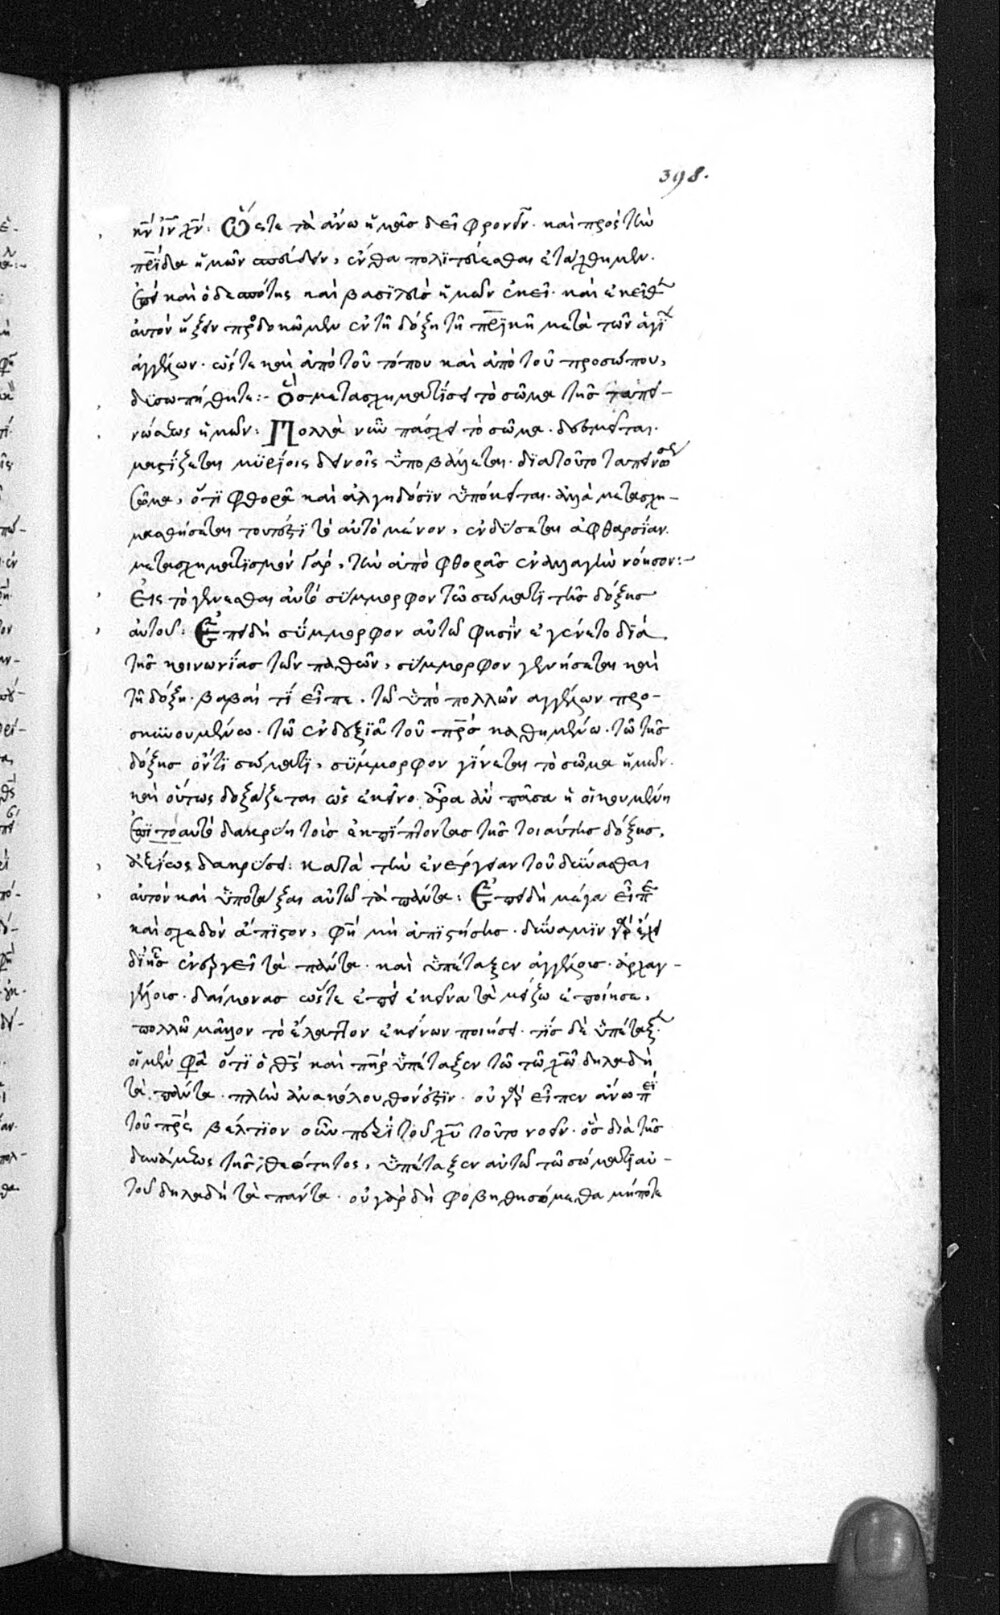 398.
κν ιν χν: Ὥστε τὰ ἄνω ἡμᾶς δεῖ φρονεῖν· καὶ πρὸς τὴν
πρίδα ἡμῶν ἀπιδεῖν, ἔνθα πολιτεύεσθαι ἐτάχθημεν.
ἐπεὶ καὶ ὁ δεσπότης καὶ βασιλεὺς ἡμῶν ἐκεῖ· καὶ ἐκεῖθεν
αὐτὸν ἥξειν προσδοκῶμεν ἐν τῇ δόξῃ τῇ πρικῇ μετὰ τῶν ἁγί
ἀγγέλων· ὥστε καὶ ἀπὸ τοῦ τόπου καὶ ἀπὸ τοῦ προσώπου,
δυσωπήθητε:- Ὃς μετασχηματίσει τὸ σῶμα τῆς ταπει-
νώσεως ἡμῶν: Πολλὰ νῦν πάσχει τὸ σῶμα· δεσμεῖται·
μαστίζεται μυρίοις δεινοῖς ὑποβάλλεται· διατοῦτο ταπεινώσεως
σῶμα, ὅτι φθορᾷ καὶ ἀλγηδόσιν ὑπόκειται· ἀλλὰ μετασχη-
μασθήσεται τουτέστι τὸ αὐτὸ μένον, ἐνδύσεται ἀφθαρσίαν.
μετασχηματισμὸν γὰρ, τὴν ἀπὸ φθορᾶς ἐναλλαγὴν νόησον:-
Εἰς τὸ γενέσθαι αὐτὸ σύμμορφον τῷ σώματι τῆς δόξης
αὐτοῦ: Ἐπειδὴ σύμμορφον αὐτῷ φησὶν ἐγένετο διὰ
τῆς κοινωνίας τῶν παθῶν, σύμμορφον γενήσεται καὶ
τῇ δόξῃ· βαβαὶ τί εἶπε· τῷ ὑπὸ πολλῶν ἀγγέλων προ-
σκυνουμένῳ· τῷ ἐν δεξιᾷ τοῦ πρς καθημένῳ· τῷ τῆς
δόξης ὄντι σώματι, σύμμορφον γίνεται τὸ σῶμα ἡμῶν.
καὶ οὕτως δοξάζεται ὡς ἐκεῖνο· ἆρα ἂν πᾶσα ἡ οἰκουμένη
ἐπὶ τὸ αὐτὸ δακρύῃ τοὺς ἐκπίπτοντας τῆς τοιαύτης δόξης,
ἀξίως δακρύσει: κατὰ τὴν ἐνέργειαν τοῦ δύνασθαι
αὐτὸν καὶ ὑποτάξαι αὐτῷ τὰ πάντα: Ἐπειδὴ μέγα εἶπε
καὶ σχεδὸν ἄπιστον, φη μὴ ἀπιστήσῃς· δύναμιν γὰρ ἔχει
δι' ἧς ἐνεργεῖ τὰ πάντα· καὶ ὑπέταξεν ἀγγέλους· ἀρχαγ-
γέλους· δαίμονας ὥστε ἐπεὶ ἐκεῖνα τὰ μείζω ἐποίησε,
πολλῷ μᾶλλον τὸ ἔλαττον ἐκείνων ποιήσει· τίς δὲ ὑπέταξεν·
οἱ μὲν φα ὅτι ὁ θς καὶ πηρ ὑπέταξεν τῷ τῷ χῶ δηλαδὴ
τὰ πάντα· πλὴν ἀνακόλουθόν ἐστιν· οὐ γὰρ εἶπεν ἄνω περὶ
τοῦ πρς βέλτιον οὖν περὶ τοῦ χυ τοῦτο νοεῖν· ὃς διὰ τῆς
δυνάμεως τῆς θεότητος, ὑπέταξεν αὐτῷ τῷ σώματι αὐ-
τοῦ δηλαδὴ τὰ πάντα· οὐ γὰρ δὴ φοβηθησόμεθα μήποτε